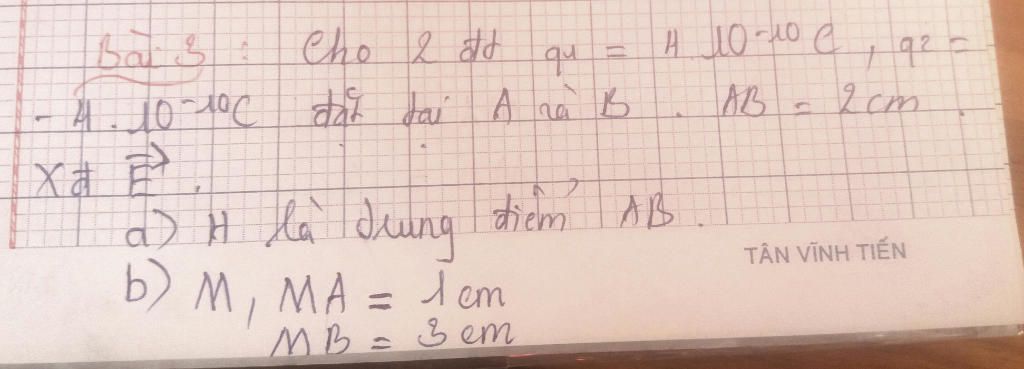 Bài 3 : Cho 2 đt q1 = 4.10-10 C, q2 =
- 4.10-10C đặt tại A và B. AB = 2cm.
Xđ E.
a) H là trung điểm AB.
TÂN VĨNH TIẾN
b) M, MA = 1cm
MB = 3cm